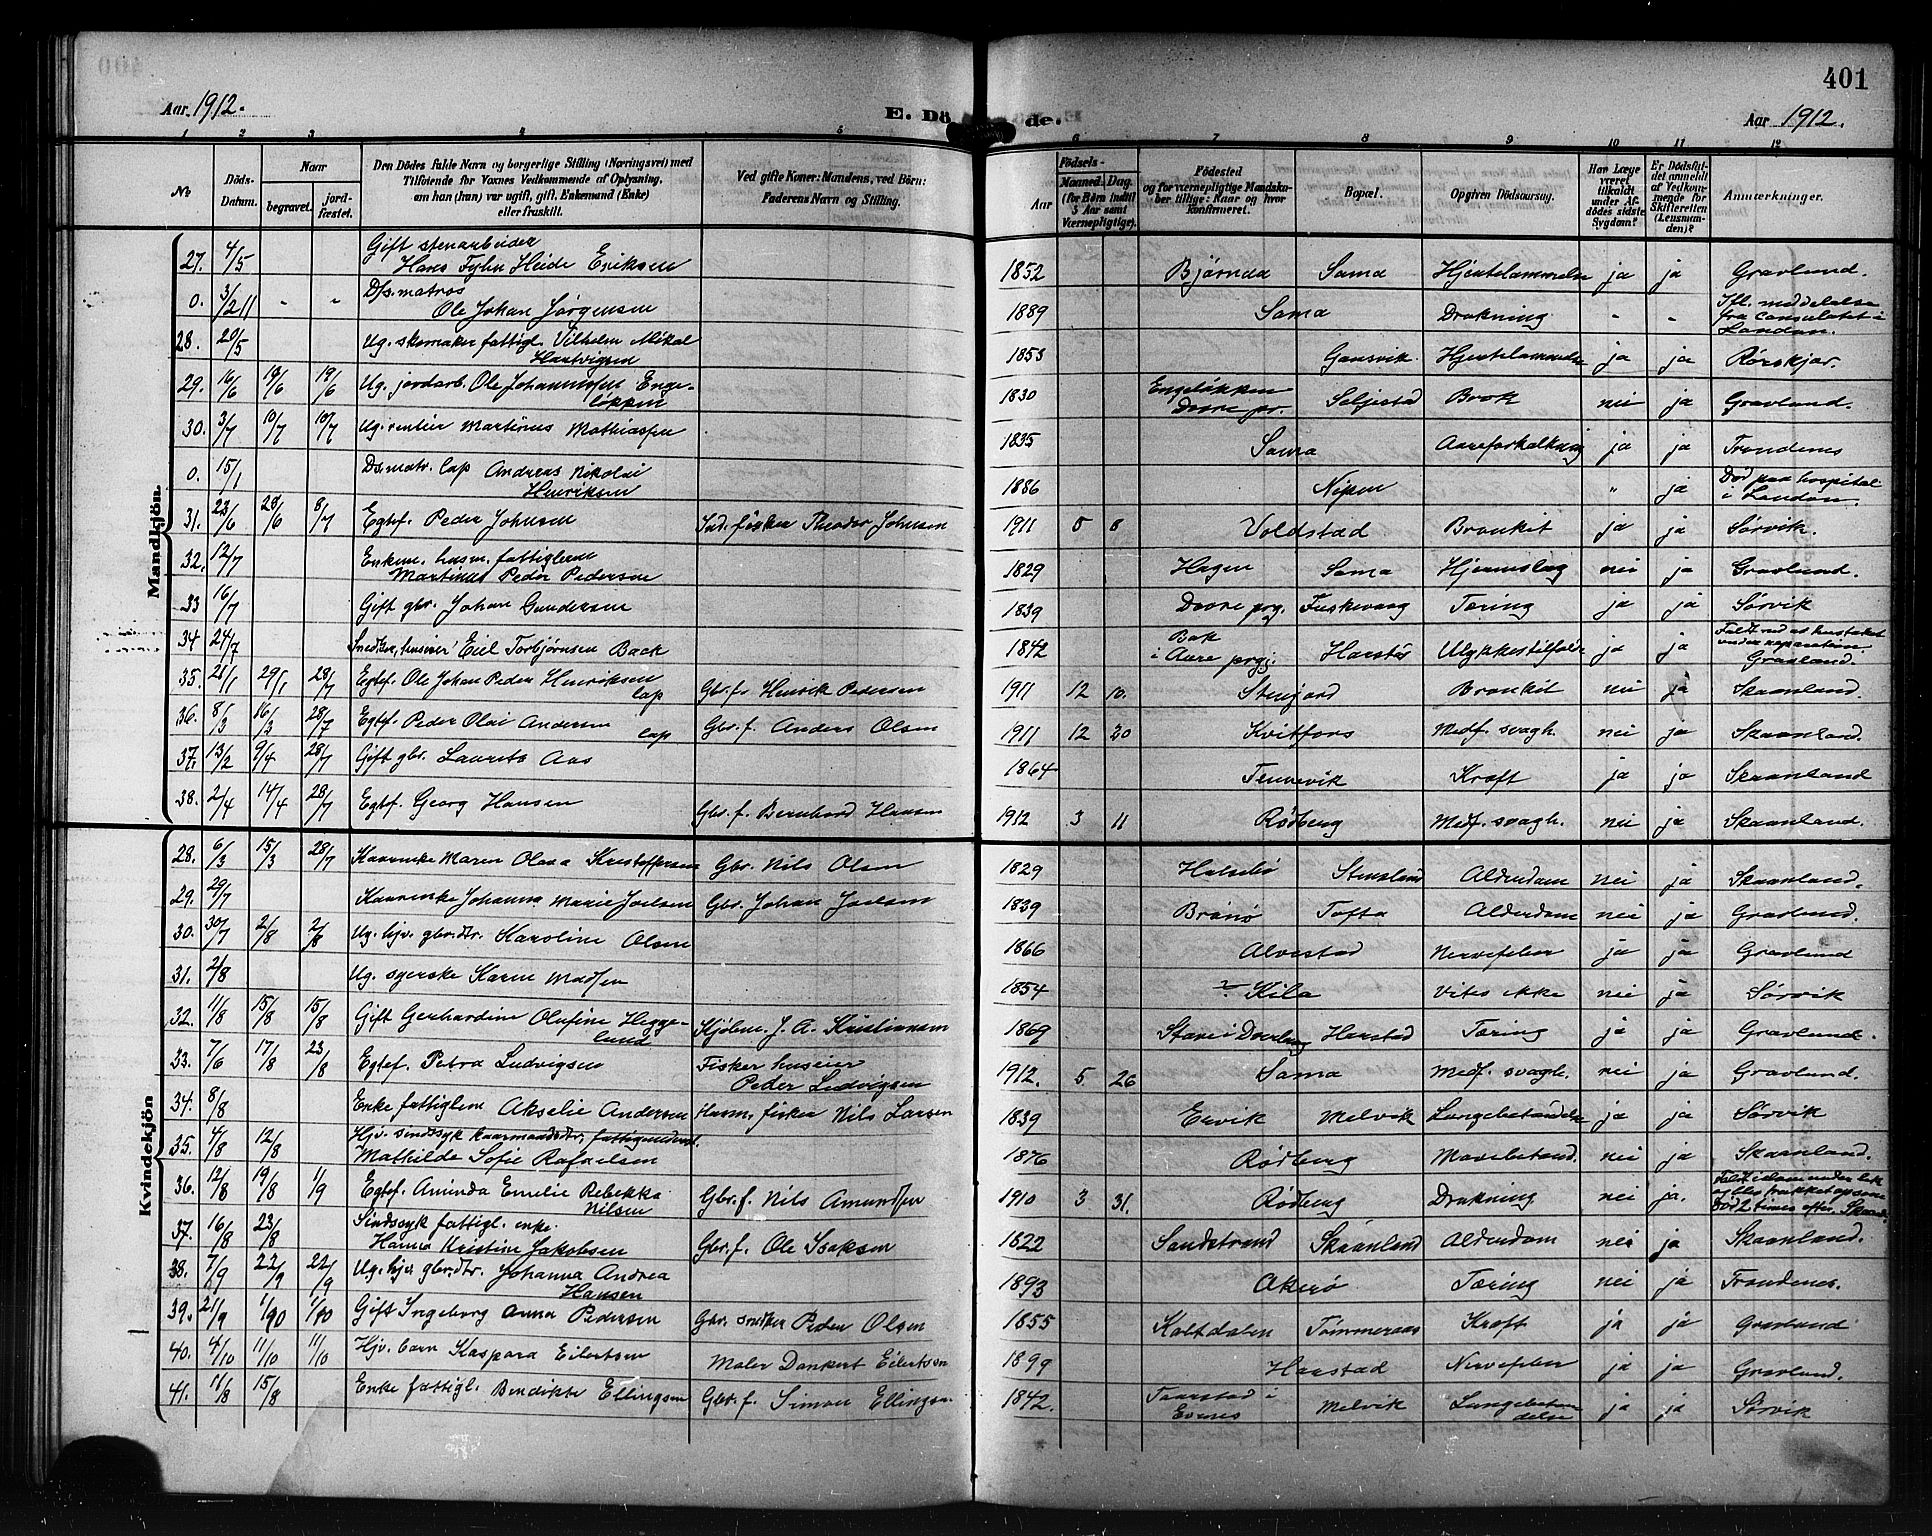 401
Aar 1912.
E. Döde.
Aar 1912.
1 2 3 4 5 6 7 8 9 10 11 12
No
Döds-Datum.
Naar
begravet.
jordfæstet.
Den Dödes fulde Navn og borgerlige Stilling (Næringsvei) med
Tilföiende for Voxnes Vedkommende af Oplysning,
om han (hun) var ugift, gift, Enkemand (Enke)
eller fraskilt.
Ved gifte Koner: Mandens, ved Börn:
Faderens Navn og Stilling.
Födsels-
Aar
Maaned. Dag.
(for Börn indtil
5 Aar samt
Værnepligtige).
Födested
og for værnepligtige Mandskaber tillige: Naar og hvor
konfirmeret.
Bopæl.
Opgiven Dödsaarsag.
Har Læge
været
tilkaldt
under Afdödes sidste
Sygdom?
Er Dödsfaldet anmeldt
af Vedkommende for
Skifteretten
(Lensmanden)?
Anmærkninger.
Mandkjön.
27. 4/5 Gift stenarbeider Hans Fyhn Heide Eriksen 1852 Bjørnaa Sama Hjertelammelse ja ja Gravlund.
0. 3/2 11 - " Ds. matros Ole Johan Jørgensen 1889 Sama Drukning - - Ifl. meddelelse fra consulatet i London.
28. 20/5 Ug. skomaker fattigl. Vilhelm Mikal Hartvigsen 1853 Gausvik Hjertelammelse ja ja Rørskjær.
29. 16/6 19/6 19/6 Ug. jordarb. Ole Johannessen Engeløkken 1830 Engeløkken Dovre pr. Seljestad Brok nei ja Gravlund.
30. 3/7 10/7 10/7 Ug. rentier Martinus Mathiassen 1835 Sama Aareforkalkning ja ja Trondenes
0. 15/1 Ds. matr. lap Andreas Nikolai Henriksen 1886 Nipen " ja Død paa hospital i London.
31. 23/6 28/6 8/7 Egtef. Peder Johnsen Ind. fisker Theodor Johnsen 1911 5 8 Voldstad Bronkit ja ja Sørvik.
32. 12/7 Enkem. husm. fattiglem Martinus Peder Pedersen 1829 Hagen Sama Hjerneslag nei ja Gravlund.
33 16/7 Gift gbr. Johan Gundersen 1839 Dovre prg. Fuskevaag Tæring ja ja Sørvik
34 24/7 Snedker, huseier Eiel Torbjørnsen Back 1842 Bak i Aure prgj. Harstad Ulykkestilfælde ja ja Faldt ned at hustaket under reparation Gravlund.
35. 21/1 29/1 28/7 Egtef. Ole Johan Peder Henriksen lap Gbr. f. Henrik Pedersen 1911 12 10. Stenjord Bronkit nei ja Skaanland.
36. 8/3 16/3 28/7 Egtef. Peder Olai Andersen lap Gbr. f. Anders Olsen 1911 12 30 Kvitfors Medf. svagh. nei ja Skaanland.
37. 13/2 9/4 28/7 Gift gbr. Laurits Aas 1864 Tennevik Kræft ja ja Skaanland
38. 2/4 14/4 28/7 Egtef. Georg Hansen Gbr. f. Bernhard Hansen 1912 3 11 Rødberg Medf. svagh. nei ja Skaanland.
Kvindekjön
28. 6/3 15/3 28/7 Kaarenke Maren Olava Kristoffersen Gbr. Nils Olsen 1829 Halsebø Stensland Alderdom nei ja Skaanland.
29. 29/7 Kaarenke Johanna Marie Joelsen Gbr. Johan Joelsen 1839 Brønø Tofta Alderdom nei ja Gravlund.
30. 30/7 2/8 2/8 Ug. hjv. gbr. dtr. Karoline Olsen 1866 Alvestad Nervefeber ja ja Gravlund
31. 2/8 Ug. syerske Karen Madsen 1854 ? Kila Vites ikke nei ja Sørvik
32. 11/8 15/8 15/8 Gift Gerhardine Olufine Heggelund Kjøbm. J. A. Kristiansen 1869 Harstad Tæring ja ja Gravlund.
33. 7/6 17/8 23/8 Egtef. Petra Ludvigsen Fisker huseier Peder Ludvigsen 1912. 5 26 Sama Medf. svagh. nei ja Gravlund.
34. 8/8 Enke fattiglem Akselie Andersen Husm, fisker Nils Larsen 1839 Ervik Melvik Lungebetændelse ja ja Sørvik
35. 4/8 12/8 Hjv. sindssyk kaarmandsdtr, fattigunderst. Mathilde Sofie Rafaelsen 1876 Rødberg Mavebetænd. nei ja Skaanland.
36. 12/8 19/8 1/9 Egtef. Aminda Emelie Rebekka Nilsen Gbr. f. Nils Amundsen 1910 3 31. Rødberg Drukning nei ja. Faldt i elven under lek og blev trukket op som død 2 timer efter. Skaanl.
37. 16/8 23/8 Sindssyk fattigl. enke. Hanna Kristine Jakobsen Gbr. f. Ole Isaksen 1822 Sandstrand Skaanland Alderdom nei ja Skaanland.
38. 7/9 22/9 22/9 Ug. hjv. gbr. dtr. Johanna Andrea Hansen 1893 Akerø Tæring nei ja Trondenes.
39. 21/9 1/10 1/10 Gift Ingeborg Anna Pedersen Gbr. snedker Peder Olsen 1855 Kaltdalen Tømmeraas Kræft ja ja Gravlund
40. 4/10 11/10 11/10 Hjv. barn Kaspara Eilertsen Maler Dankert Eilertsen 1899 Harstad Nervefeber ja ja Gravlund.
41. 11/8 15/8 Enke fattigl. Bendikte Ellingsen Gbr. f. Simon Ellingsen. 1842. Taarstad i Evenes Melvik Lungebetændelse ja ja Sørvik